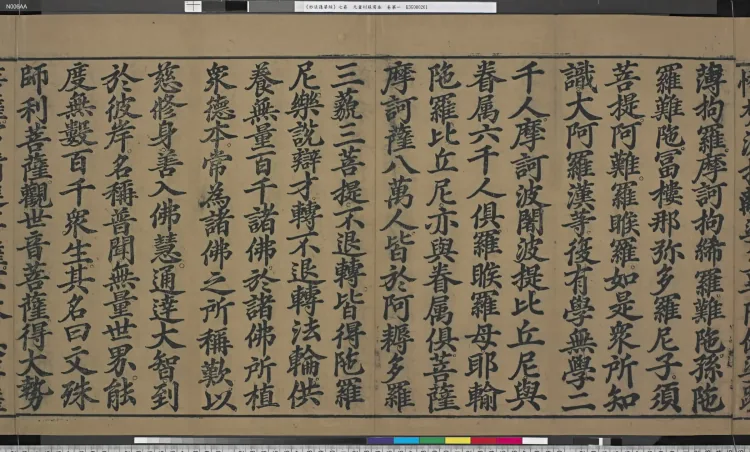 N006AA
薄拘羅摩訶拘絺羅難陁孫陁
羅難陁冨樓那弥多羅尼子。須
菩提阿難羅睺羅。如是衆所知
識大阿羅漢等。復有學無學二
千人摩訶波闍波提比丘尼與
眷属六千人俱羅睺羅母耶輸
陁羅比丘尼。亦與眷属俱菩薩
摩訶薩八萬人皆於阿耨多羅
三藐三菩提不退轉皆得陁羅
尼樂說辯才轉不退轉法輪供
養無量百千諸佛於諸佛所植
衆德本。常為諸佛之所稱歎以
慈修身善入佛慧通達大智到
於彼岸。名稱普聞無量世界。能
度無數百千衆生。其名曰文殊
師利菩薩觀世音菩薩得大勢